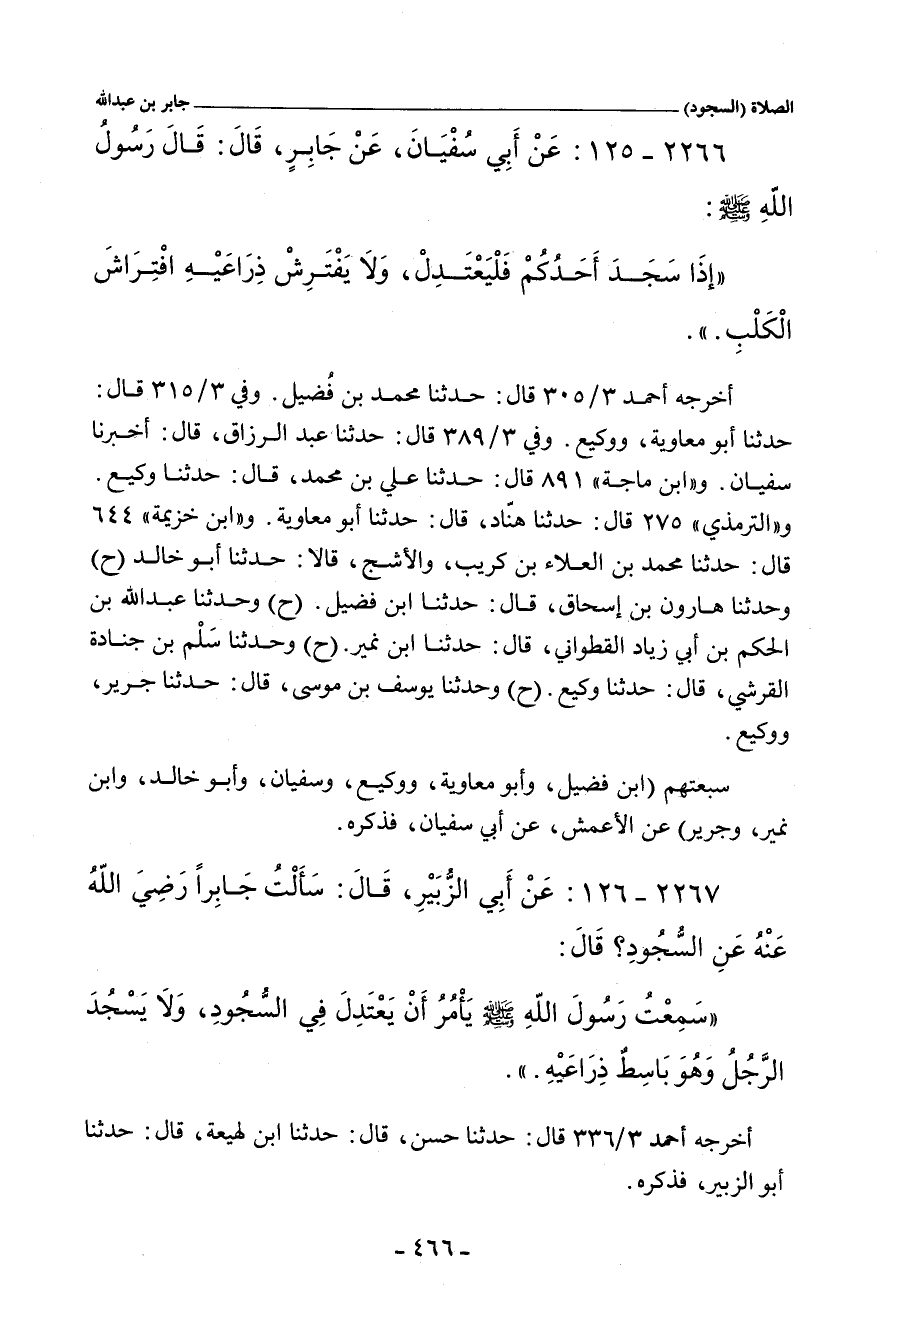 الصلاة (السجود) ـــــ جابر بن عبدالله
٢٢٦٦ - ١٢٥ : عَنْ أَبِي سُفْيَانَ، عَنْ جَابِرٍ، قَالَ: قَالَ رَسُولُ
اللَّهِ ﷺ:
«إِذَا سَجَدَ أَحَدُكُمْ فَلْيَعْتَدِلْ، وَلَا يَفْتَرِشْ ذِرَاعَيْهِ افْتِرَاشَ
الْكَلْبِ.».
أخرجه أحمد ٣٠٥/٣ قال: حدثنا محمد بن فُضيل. وفي ٣١٥/٣ قال:
حدثنا أبو معاوية، ووكيع. وفي ٣٨٩/٣ قال: حدثنا عبد الرزاق، قال: أخبرنا
سفيان. و«ابن ماجة» ٨٩١ قال: حدثنا علي بن محمد، قال: حدثنا وكيع.
و«الترمذي» ٢٧٥ قال: حدثنا هنّاد، قال: حدثنا أبو معاوية. و«ابن خزيمة» ٦٤٤
قال: حدثنا محمد بن العلاء بن كريب، والأشج، قالا: حدثنا أبو خالد (ح)
وحدثنا هارون بن إسحاق، قال: حدثنا ابن فضيل. (ح) وحدثنا عبدالله بن
الحكم بن أبي زياد القطواني، قال: حدثنا ابن نمير.(ح) وحدثنا سَلْم بن جنادة
القرشي، قال: حدثنا وكيع.(ح) وحدثنا يوسف بن موسى، قال: حدثنا جرير،
ووكيع.
سبعتهم (ابن فضيل، وأبو معاوية، ووكيع، وسفيان، وأبو خالد، وابن
نمير، وجرير) عن الأعمش، عن أبي سفيان، فذكره.
٢٢٦٧ - ١٢٦ : عَنْ أَبِي الزُّبَيْرِ، قَالَ: سَأَلْتُ جَابِراً رَضِيَ اللَّهُ
عَنْهُ عَنِ السُّجُودِ؟ قَالَ:
«سَمِعْتُ رَسُولَ اللَّهِ ﷺ يَأْمُرُ أَنْ يَعْتَدِلَ فِي السُّجُودِ، وَلَا يَسْجُدَ
الرَّجُلُ وَهُوَ بَاسِطٌ ذِرَاعَيْهِ.».
أخرجه أحمد ٣٣٦/٣ قال: حدثنا حسن، قال: حدثنا ابن لهيعة، قال: حدثنا
أبو الزبير، فذكره.
- ٤٦٦ -